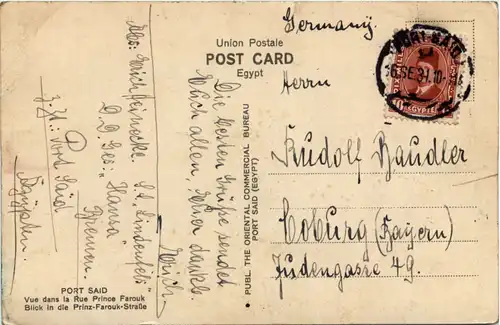 Germany.
Union Postale
POST CARD
Egypt
PORT-SAID
EGYPTE
Herrn
Rudolf Baudler
Coburg (Bayern)
Judengasse 49.
Die besten Grüße sendet
Euch allen, Euer dankb.
Erich
D. D. Ges: „Hansa“
Bremen.
z. Zt: Port Said
Ägypten.
PUBL. THE ORIENTAL COMMERCIAL BUREAU
PORT SAID (EGYPT)
PORT SAID
Vue dans la Rue Prince Farouk
Blick in die Prinz-Farouk-Straße